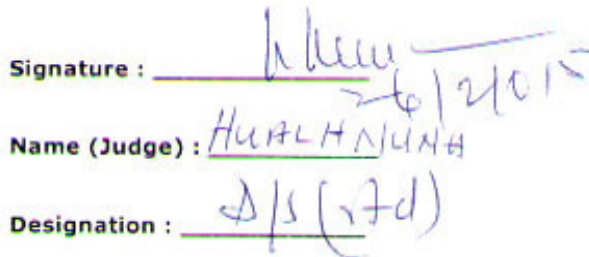 Signature :
26/2/015
Name (Judge) : HUALHNUNA
Designation : D/S (rtd)